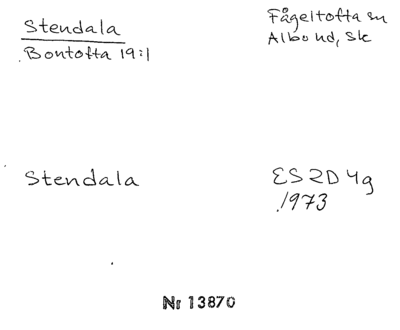 Stendala
Bontofta 19:1
Fågeltofta sn
Albo hd, Sk
Stendala
ES 2D 4g
1973
Nr 13870